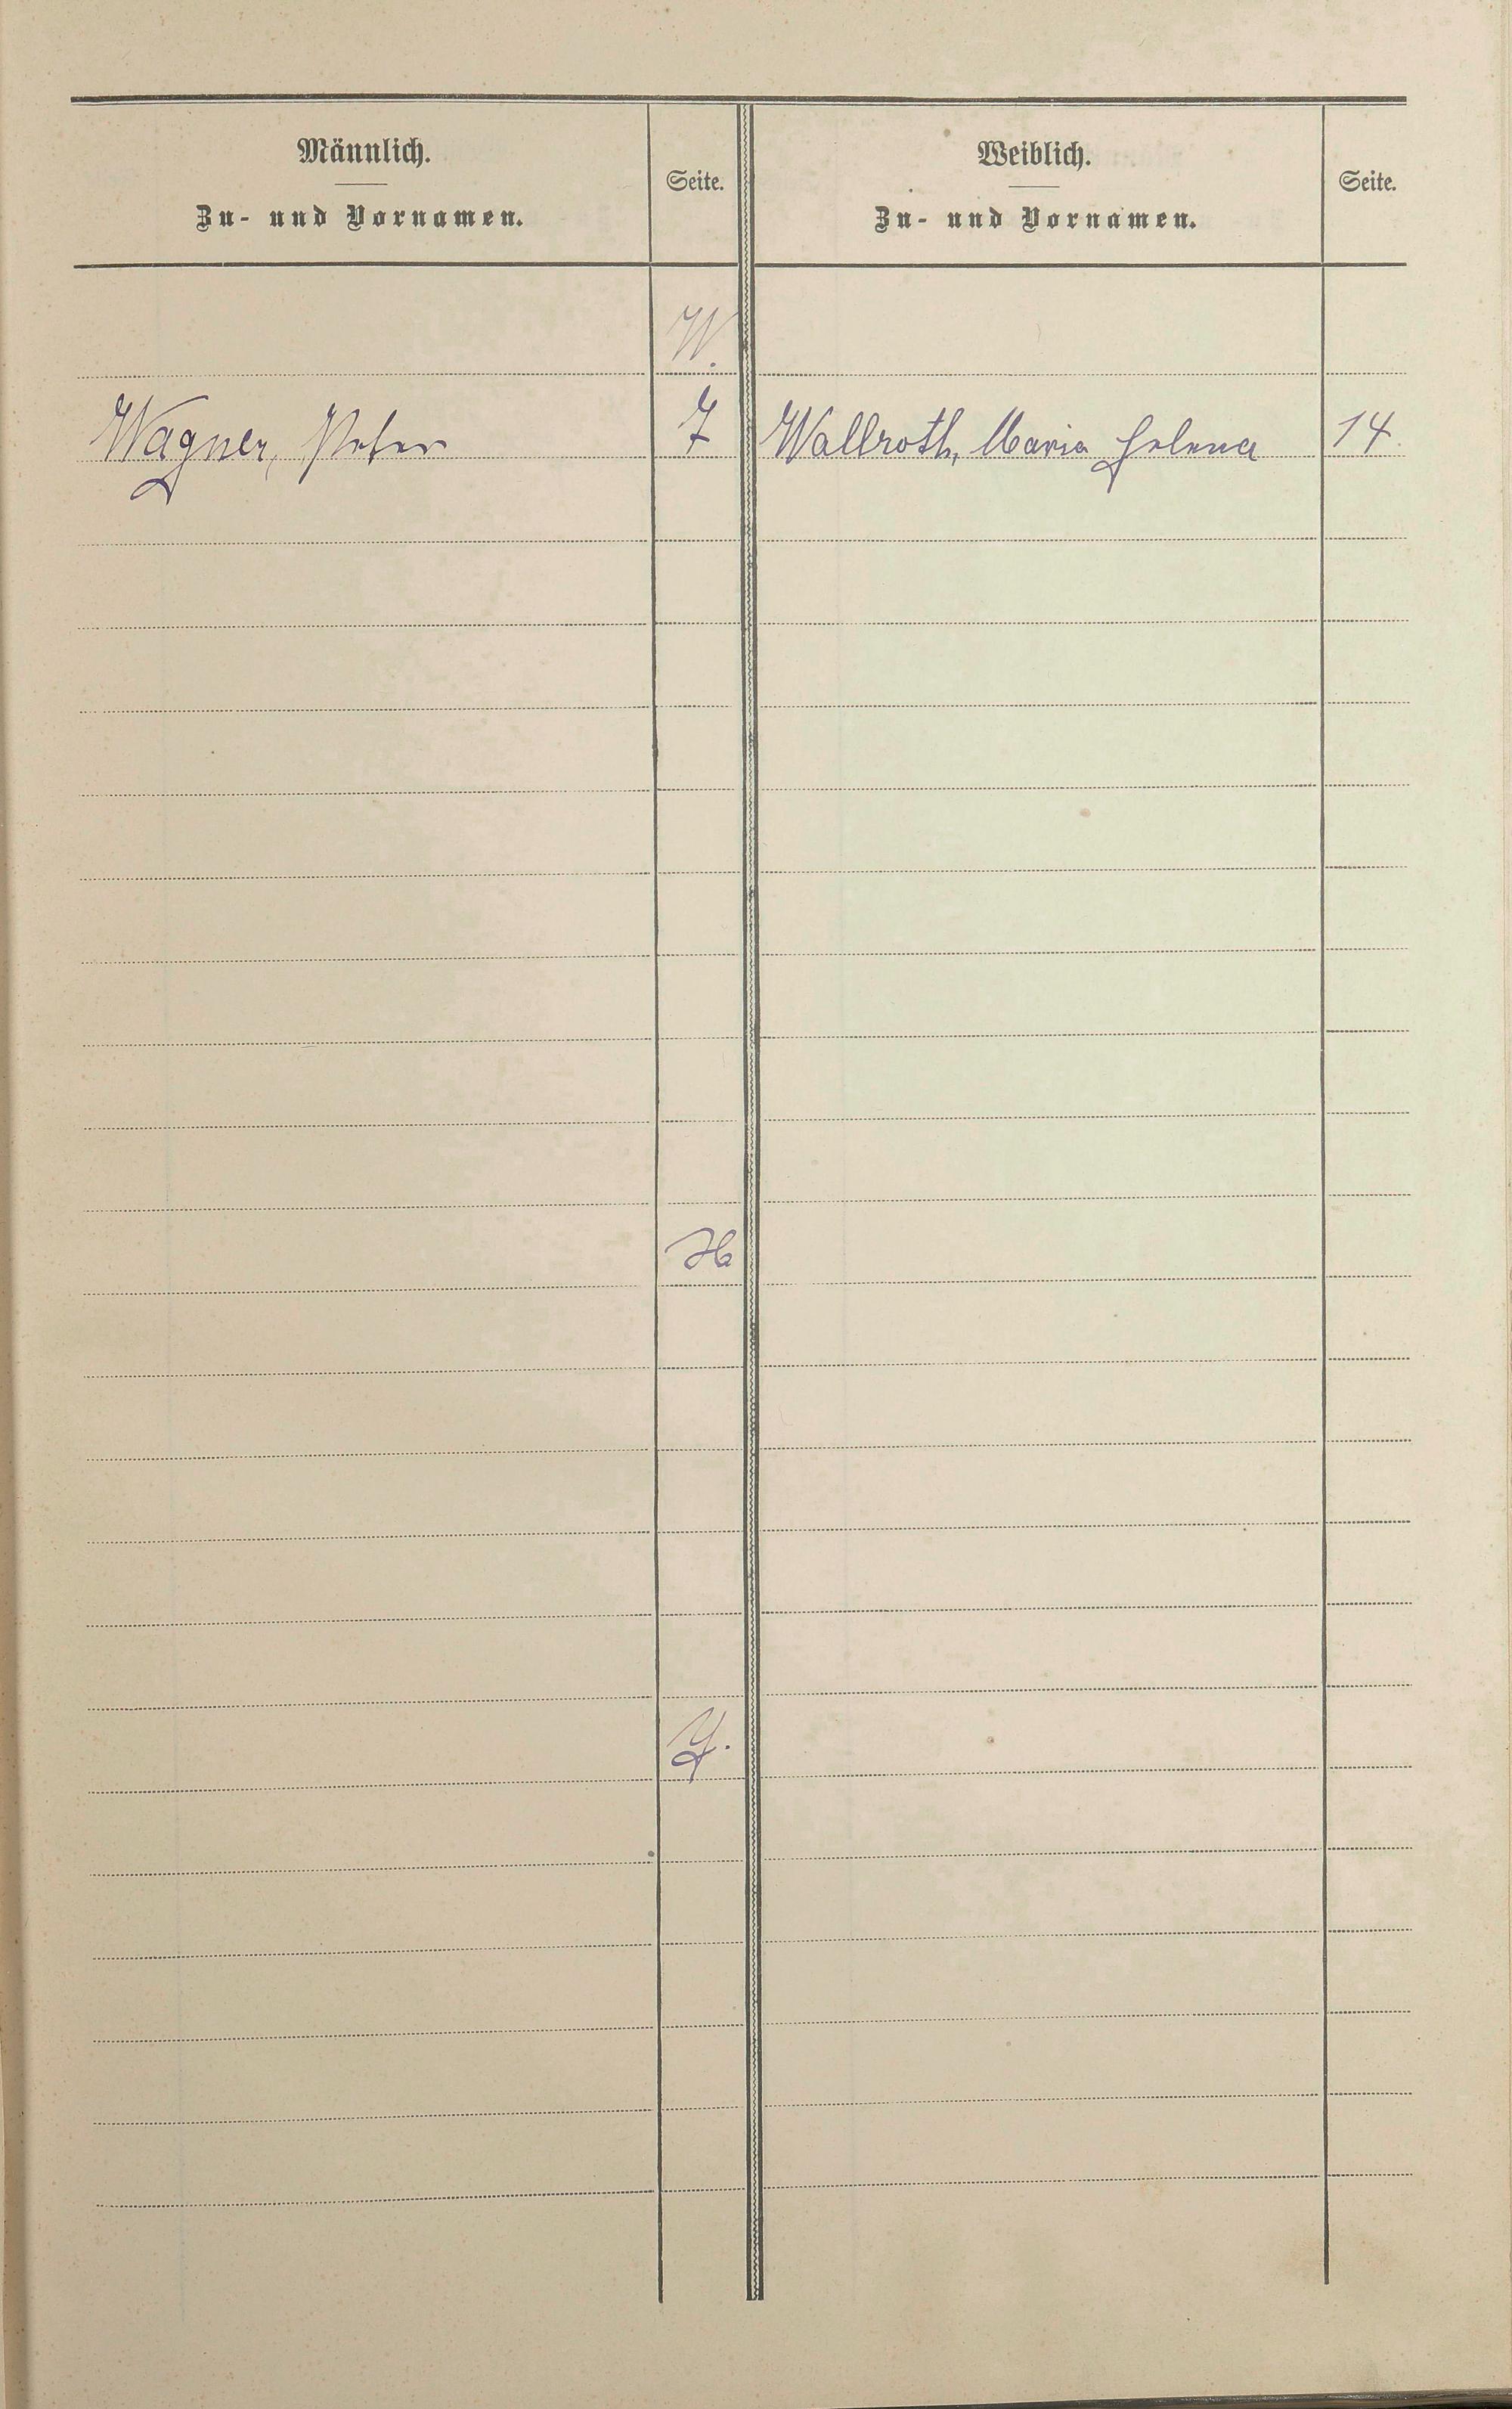 Männlich.
Zu- und Vornamen.
Seite.
Weiblich.
Zu- und Vornamen.
Seite.
W.
Wagner, Peter
7
Wallroth, Maria Helena
14.
Y.